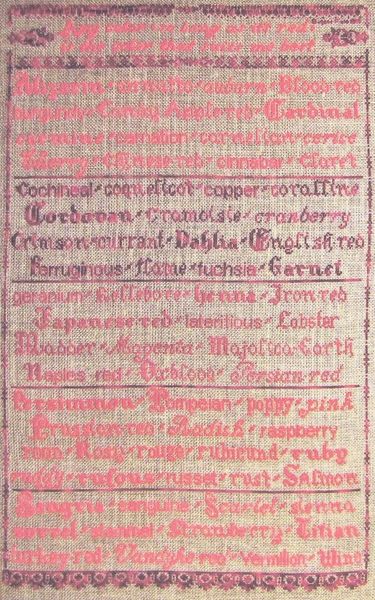 Any
is the color that
Alizarin · amaranth · auburn · Blood-red
burgundy · Candy Apple-red · Cardinal
carmine · carnation · carnelian · cerise
Cherry · Chinese-red · cinnabar · Claret
Cochineal · coquelicot · copper · coralline
Cordovan · Cramoisie · cranberry
Crimson · currant · Dahlia · English red
Ferruginous · flame · fuchsia · Garnet
geranium · hellebore · henna · Iron red
Japanese-red · lateritious · Lobster
Madder · Magenta · Majolica Earth
Naples red · Oxblood · Persian-red
Persimmon · Pompeian · poppy · pink
Prussian-red · Raddish · raspberry
Rosy · rouge · rubicund · ruby
ruddy · rufous · russet · rust · Salmon
Sangria · sanguine · Scarlet · sienna
sorrel · Strawberry · Titian
turkey-red · Vandyke-red · Vermilion · Wine